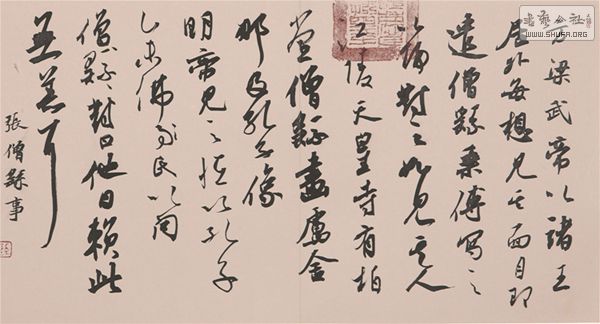 方梁武帝以諸王
居外每想見其面目即
遣僧繇乘傳寫之
以歸對之如見其人
江陵天皇寺有柏
堂僧繇畫盧舍
那及孔子像
明帝見之怪以孔子
佛氏以問
僧繇對曰他日賴此
無恙耳
張僧繇事
書藝公社
WWW.SHUFA.ORG